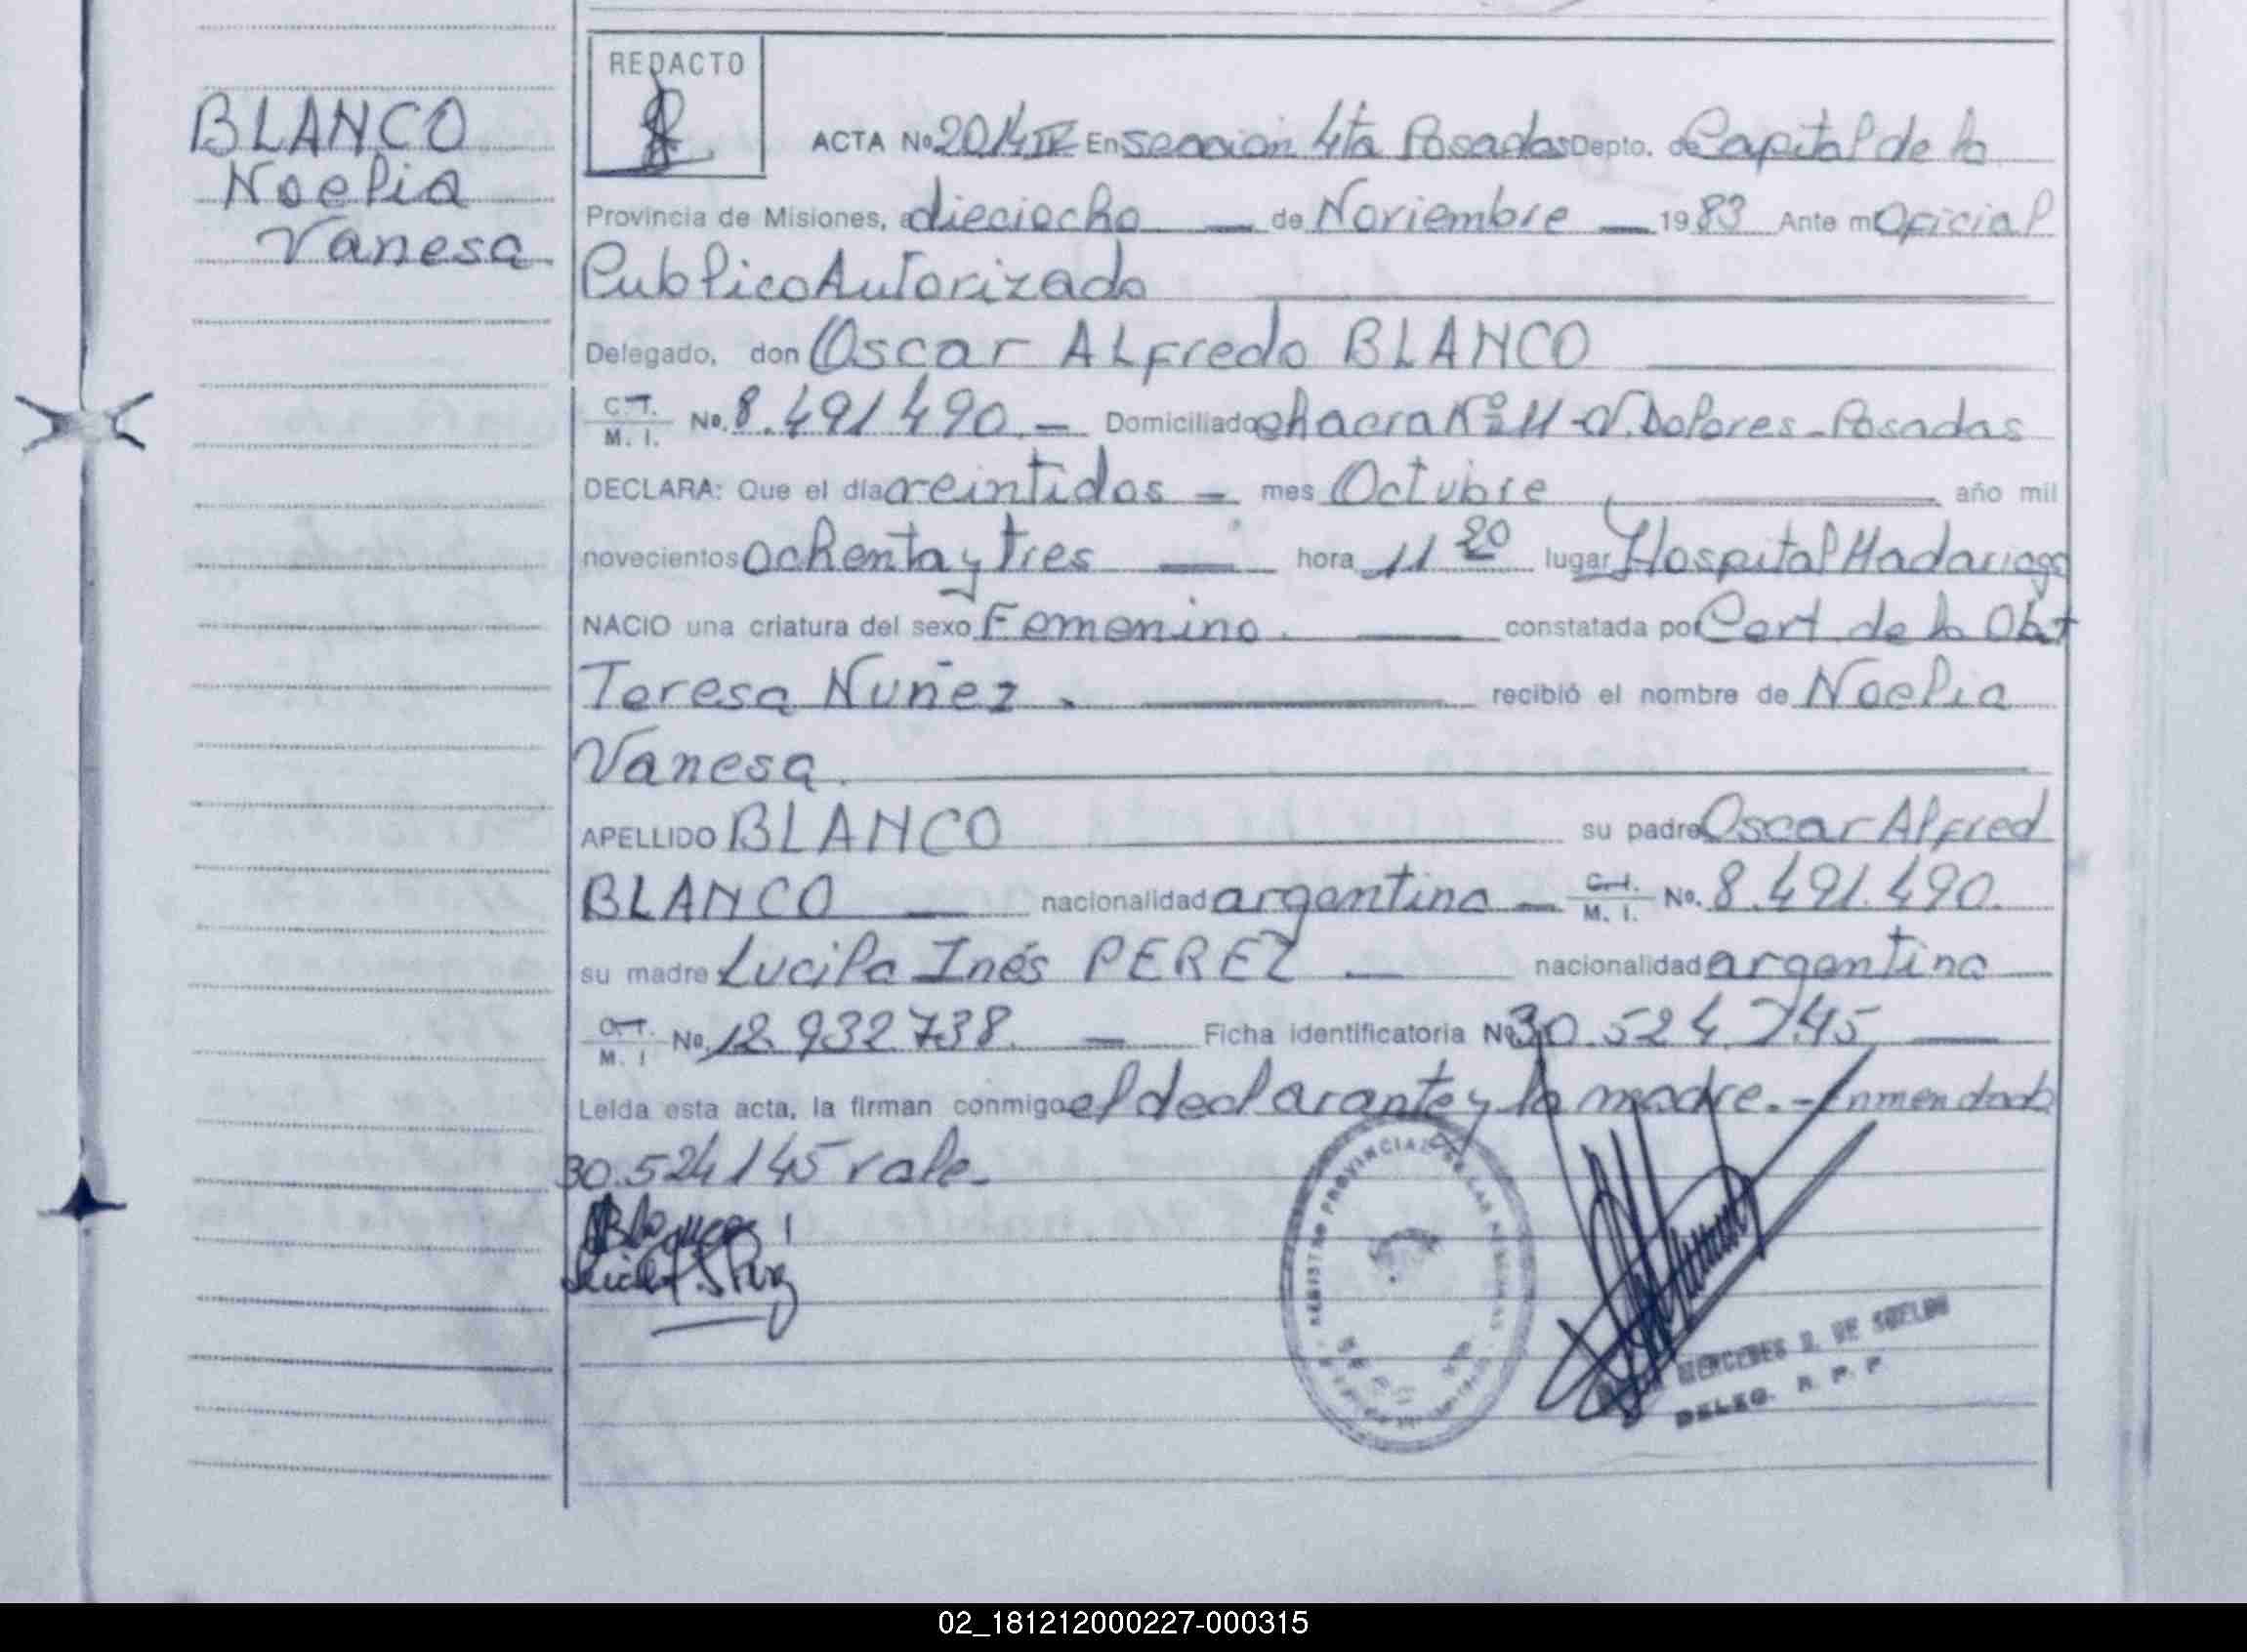 BLANCO
Noelia
Vanesa
REDACTO
ACTA No 2014 IV En sección 4ta Posadas Depto. de Capital de la
Provincia de Misiones, a dieciocho — de Noviembre — 1983 Ante mi Oficial
Publico Autorizado
Delegado, don Oscar ALfredo BLANCO
C.I. M. I. No. 8.491490.— Domiciliado chacra Nº 11 - V. Dolores - Posadas
DECLARA: Que el día veintidos — mes Octubre — año mil
novecientos ochenta y tres — hora 11 20 lugar Hospital Madariaga
NACIO una criatura del sexo Femenino. — constatada por Cert de la Obst
Teresa Nuñez. — recibió el nombre de Noelia
Vanesa.
APELLIDO BLANCO su padre Oscar Alfred
BLANCO — nacionalidad argentina — C.I. M. I. No. 8.491.490.
su madre Lucila Inés PEREZ — nacionalidad argentina
C.I. M. I No. 12.932738. — Ficha identificatoria No 30.524.145 —
Leída esta acta, la firman conmigo el declarante y la madre. - Enmendado
30.524145 vale.
REGISTRO PROVINCIAL DE LAS PERSONAS
MERCEDES D. DE SUELDO
DELEG. R. P. P.
02_181212000227-000315